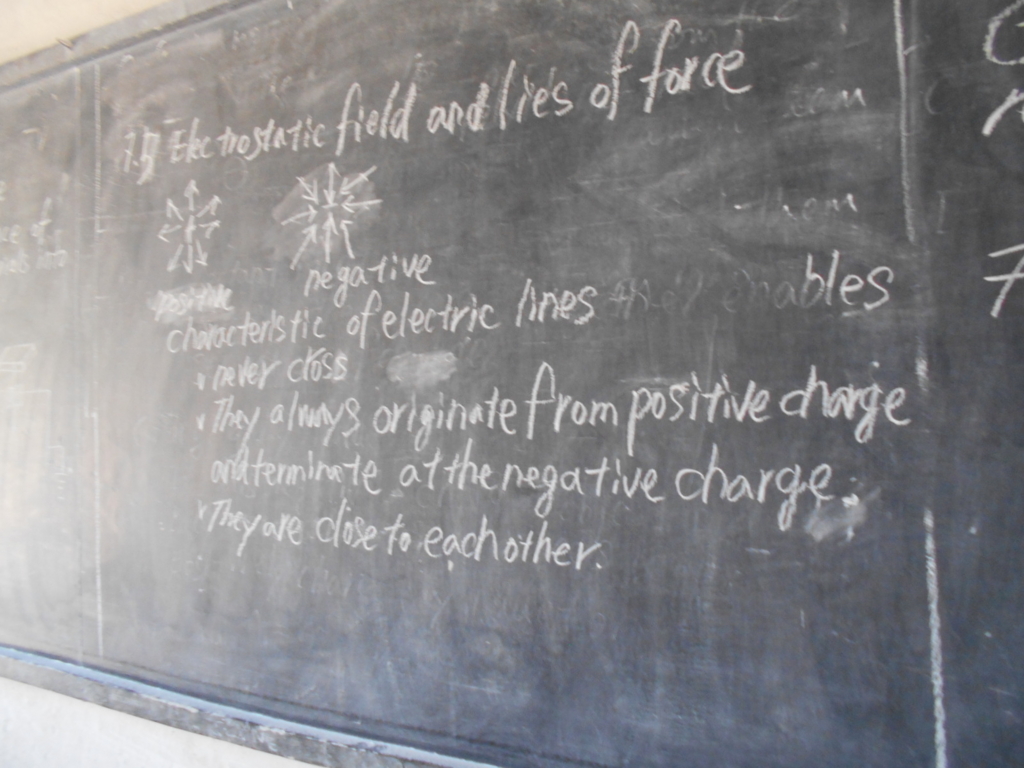 7.5 Electrostatic field and lies of force
negative
positive
characteristic of electric lines enables
never cross
They always originate from positive charge
and terminate at the negative charge.
They are close to each other.